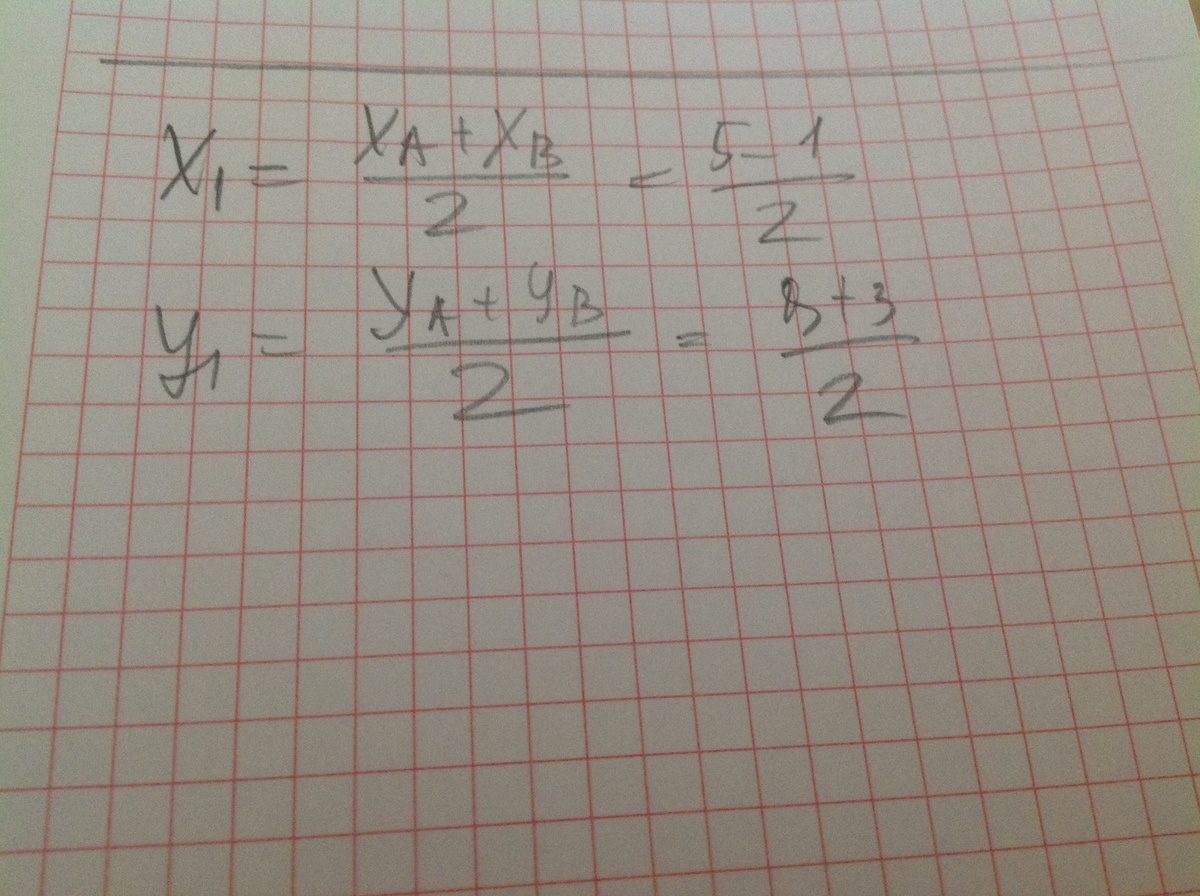 X₁ = (X_A + X_B)/2 = (5 - 1)/2
y₁ = (y_A + y_B)/2 = (8 + 3)/2